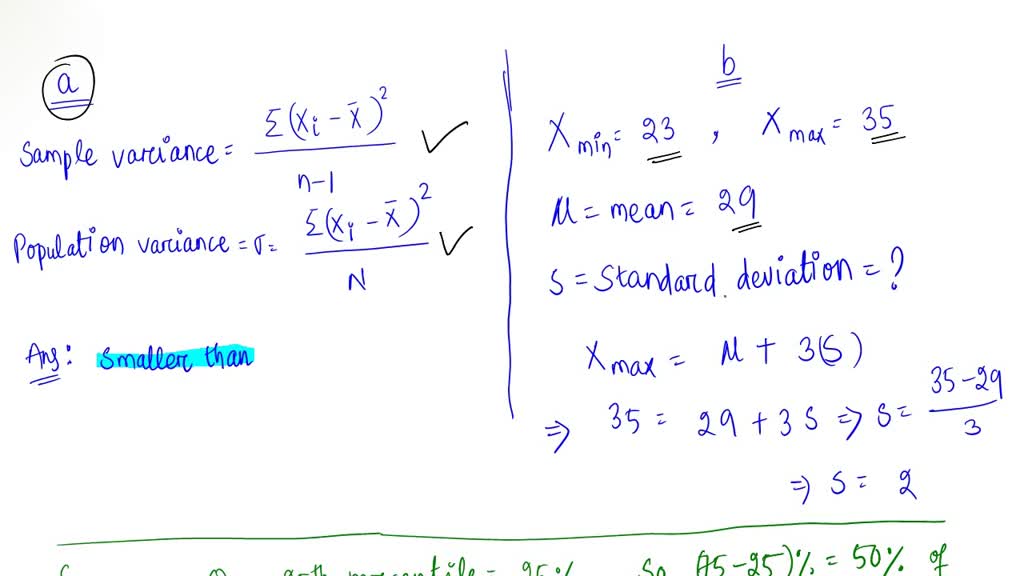 a
Sample variance = Σ(Xi - X̄)² / n-1
Population variance = σ = Σ(Xi - X̄)² / N
Ans: Smaller than
b
Xmin = 23 , Xmax = 35
M = mean = 29
S = Standard deviation = ?
Xmax = M + 3(S)
⇒ 35 = 29 + 3 S ⇒ S = 35-29 / 3
⇒ S = 2
percentile = 25% So (75-25)% = 50% of